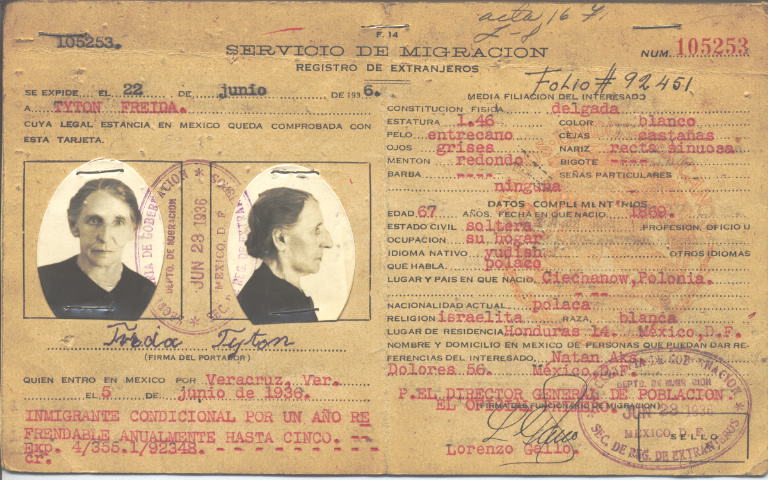 105253.
F. 14
acta 16 F.
L-8
SERVICIO DE MIGRACION
REGISTRO DE EXTRANJEROS
NUM. 105253
Folio # 92451
SE EXPIDE EL 22 DE junio DE 1936.
A TYTON FREIDA.
CUYA LEGAL ESTANCIA EN MEXICO QUEDA COMPROBADA CON
ESTA TARJETA.
SECRETARIA DE GOBERNACION
DEPTO. DE MIGRACION
JUN 23 1936
MEXICO, D. F.
Freda Tyton
(FIRMA DEL PORTADOR)
QUIEN ENTRO EN MEXICO POR Veracruz, Ver.
EL 5 DE junio de 1936.
INMIGRANTE CONDICIONAL POR UN AÑO RE
FRENDABLE ANUALMENTE HASTA CINCO. --
Exp. 4/355.1/92348. - - - - - - - -
cr.
MEDIA FILIACION DEL INTERESADO
CONSTITUCION FISICA delgada
ESTATURA 1.46 COLOR blanco
PELO entrecano CEJAS castañas
OJOS grises NARIZ recta sinuosa
MENTON redondo BIGOTE ----
BARBA ---- SEÑAS PARTICULARES
ninguna
DATOS COMPLEMENTARIOS
EDAD 67 AÑOS. FECHA EN QUE NACIO 1869.
ESTADO CIVIL soltera PROFESION, OFICIO U
OCUPACION su hogar
IDIOMA NATIVO yudish OTROS IDIOMAS
QUE HABLA. polaco
LUGAR Y PAIS EN QUE NACIO. Ciechanow, Polonia.
NACIONALIDAD ACTUAL polaca
RELIGION israelita RAZA blanca
LUGAR DE RESIDENCIA Honduras 14. México, D.F.
NOMBRE Y DOMICILIO EN MEXICO DE PERSONAS QUE PUEDAN DAR RE-
FERENCIAS DEL INTERESADO. Natan Aks.
Dolores 56. México, D.F.
P. EL DIRECTOR GENERAL DE POBLACION.
(FIRMA DEL FUNCIONARIO DE MIGRACION)
Lorenzo Gallo.
SECRETARIA DE GOBERNACION
DEPTO. DE MIGRACION
JUN 23 1936
MEXICO, D. F.
SEC. DE REG. DE EXTRANJEROS
SELLO